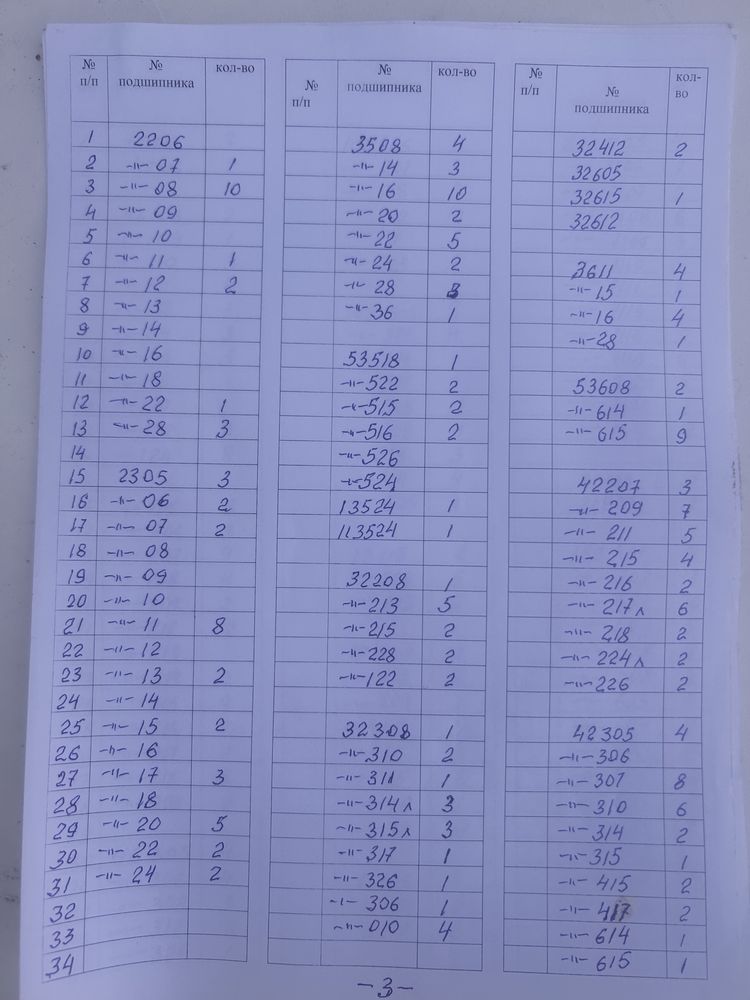 № п/п № подшипника кол-во
1 2206
2 -"- 07 1
3 -"- 08 10
4 -"- 09
5 -"- 10
6 -"- 11 1
7 -"- 12 2
8 -"- 13
9 -"- 14
10 -"- 16
11 -"- 18
12 -"- 22 1
13 -"- 28 3
14
15 2305 3
16 -"- 06 2
17 -"- 07 2
18 -"- 08
19 -"- 09
20 -"- 10
21 -"- 11 8
22 -"- 12
23 -"- 13 2
24 -"- 14
25 -"- 15 2
26 -"- 16
27 -"- 17 3
28 -"- 18
29 -"- 20 5
30 -"- 22 2
31 -"- 24 2
32
33
34
№ п/п № подшипника кол-во
3508 4
-"- 14 3
-"- 16 10
-"- 20 2
-"- 22 5
-"- 24 2
-"- 28
-"- 36 1
53518 1
-"- 522 2
-"- 515 2
-"- 516 2
-"- 526
-"- 524
13524 1
113524 1
32208 1
-"- 213 5
-"- 215 2
-"- 228 2
-"- 122 2
32308 1
-"- 310 2
-"- 311 1
-"- 314л 3
-"- 315л 3
-"- 317 1
-"- 326 1
-"- 306 1
-"- 010 4
№ п/п № подшипника кол-во
32412 2
32605
32615 1
32612
3611 4
-"- 15 1
-"- 16 4
-"- 28 1
53608 2
-"- 614 1
-"- 615 9
42207 3
-"- 209 7
-"- 211 5
-"- 215 4
-"- 216 2
-"- 217л 6
-"- 218 2
-"- 224л 2
-"- 226 2
42305 4
-"- 306
-"- 307 8
-"- 310 6
-"- 314 2
-"- 315 1
-"- 415 2
-"- 417 2
-"- 614 1
-"- 615 1
-3-